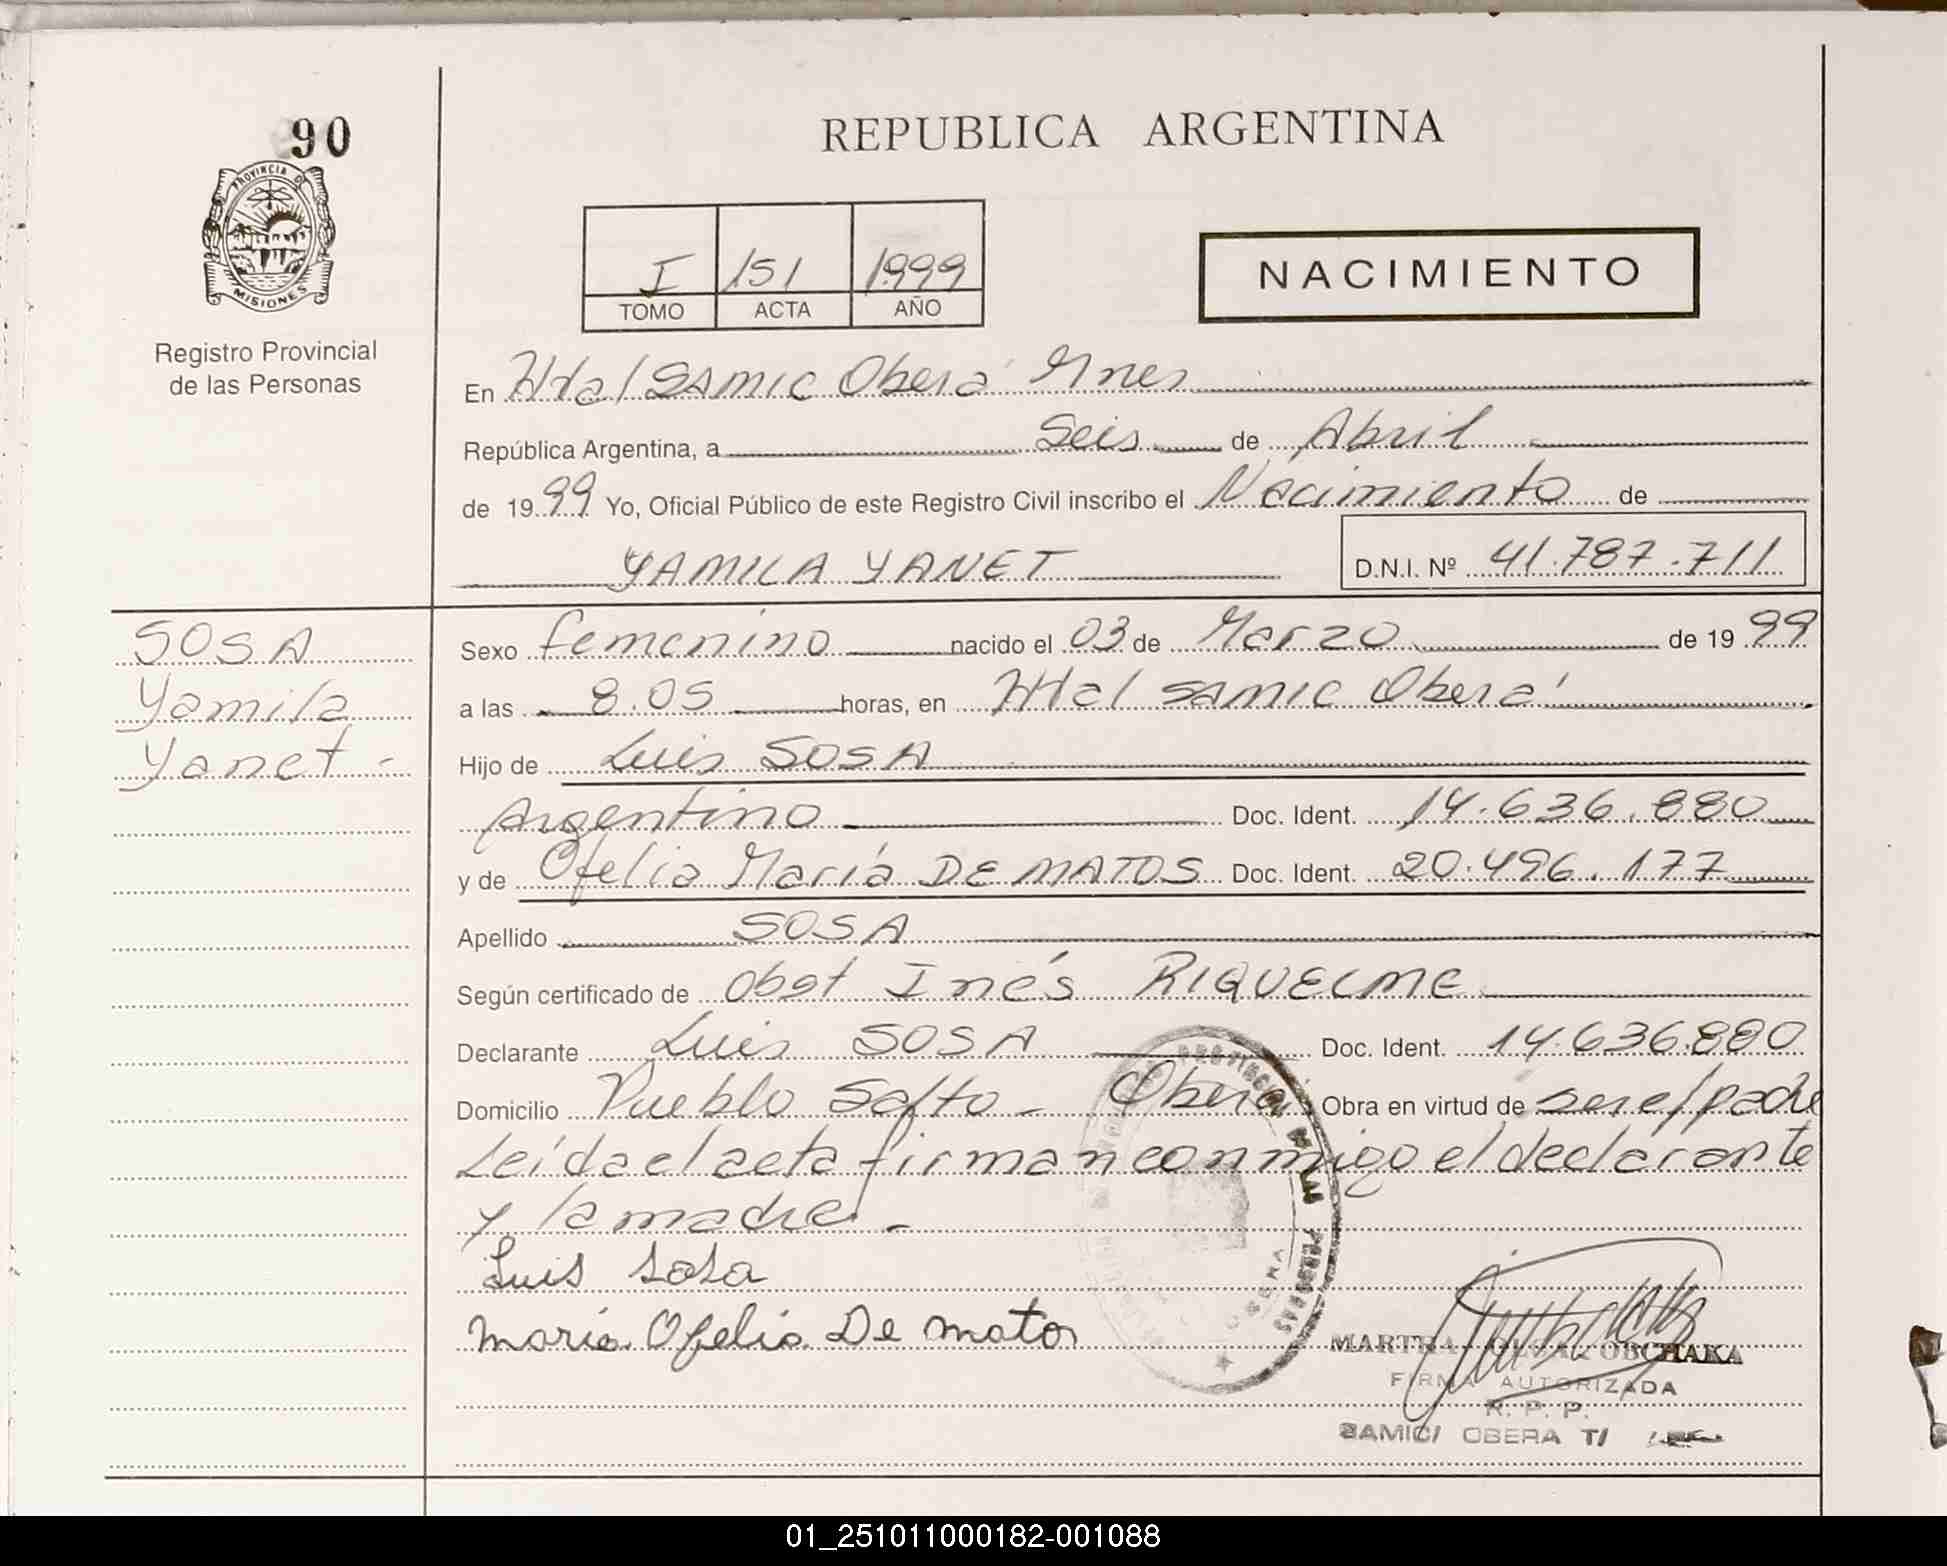 90
PROVINCIA DE
MISIONES
Registro Provincial
de las Personas
REPUBLICA ARGENTINA
I 151 1999
TOMO ACTA AÑO
NACIMIENTO
En Htal SAMIC Oberá Mnes
República Argentina, a Seis de Abril
de 1999 Yo, Oficial Público de este Registro Civil inscribo el Nacimiento de
YAMILA YANET D.N.I. Nº 41.787.711
SOSA
Yamila
Yanet -
Sexo femenino nacido el 03 de Marzo de 1999
a las 8.05 horas, en Htal SAMIC Oberá
Hijo de Luis SOSA
Argentino Doc. Ident. 14.636.880
y de Ofelia María DE MATOS Doc. Ident. 20.496.177
Apellido SOSA
Según certificado de Obst Inés RIQUELME
Declarante Luis SOSA Doc. Ident. 14.636.880
Domicilio Pueblo Salto - Oberá Obra en virtud de ser el padre
Leída el acta firman conmigo el declarante
y la madre. -
Luis Sosa
Maria Ofelia De matos
MARTHA OLGA
FIRMA AUTORIZADA
R. P. P.
SAMIC/ OBERA T/
01_251011000182-001088